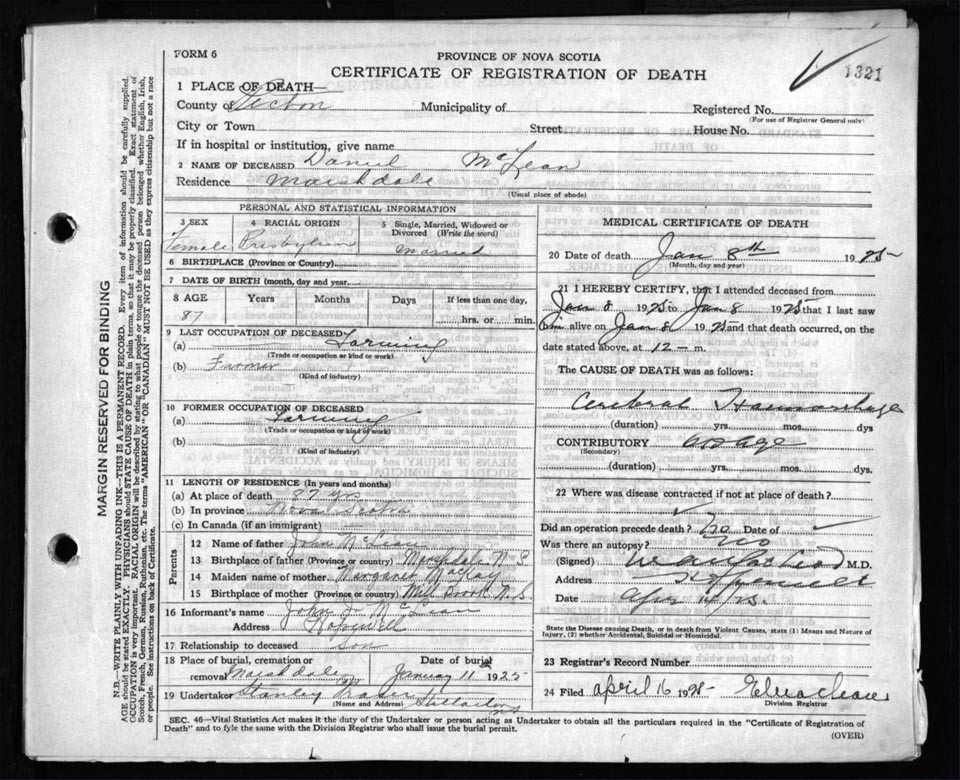 FORM 6
PROVINCE OF NOVA SCOTIA
CERTIFICATE OF REGISTRATION OF DEATH
1321
1 PLACE OF DEATH—
County of Pictou Municipality of Registered No.
(For use of Registrar General only)
City or Town Street House No.
If in hospital or institution, give name
2 NAME OF DECEASED Daniel McLean
Residence Marshdale
(Usual place of abode)
PERSONAL AND STATISTICAL INFORMATION
3 SEX Female
4 RACIAL ORIGIN Presbyterian
5 Single, Married, Widowed or Divorced (Write the word) Married
6 BIRTHPLACE (Province or Country)
7 DATE OF BIRTH (month, day and year)
8 AGE Years Months Days If less than one day,
87 hrs. or min.
9 LAST OCCUPATION OF DECEASED
(a) Farming
(Trade or occupation or kind or work)
(b) Farmer
(Kind of industry)
10 FORMER OCCUPATION OF DECEASED
(a) Farming
(Trade or occupation or kind of work)
(b)
(Kind of industry)
11 LENGTH OF RESIDENCE (In years and months)
(a) At place of death 87 yrs
(b) In province Nova Scotia
(c) In Canada (if an immigrant)
Parents
12 Name of father John McLean
13 Birthplace of father (Province or country) Marshdale N S
14 Maiden name of mother Margaret
15 Birthplace of mother (Province or country) Mill Brook N.S
16 Informant's name John J McLean
Address Hopewell
17 Relationship to deceased son
18 Place of burial, cremation or removal Marshdale Date of burial January 11 1925
19 Undertaker Stanley
(Name and Address)
MEDICAL CERTIFICATE OF DEATH
20 Date of death Jan 8th 1925
(Month, day and year)
21 I HEREBY CERTIFY, that I attended deceased from
Jan 8 1925 to Jan 8 1925 that I last saw
him alive on Jan 8 1925 and that death occurred, on
date stated above, at 12 — m.
The CAUSE OF DEATH was as follows:
Cerebral Hemorrhage
(duration) yrs. mos. dys
CONTRIBUTORY Old Age
(Secondary)
(duration) yrs. mos. dys.
22 Where was disease contracted if not at place of death?
Did an operation precede death? No Date of
Was there an autopsy? No
(Signed) M.D.
Address Hopewell
Date Apr 14/25.
State the Disease causing Death, or in death from Violent Causes, state (1) Means and Nature of
Injury, (2) whether Accidental, Suicidal or Homicidal.
23 Registrar's Record Number
24 Filed April 16 1925
Division Registrar
SEC. 46—Vital Statistics Act makes it the duty of the Undertaker or person acting as Undertaker to obtain all the particulars required in the "Certificate of Registration of
Death" and to fyle the same with the Division Registrar who shall issue the burial permit.
(OVER)
MARGIN RESERVED FOR BINDING
N.B.—WRITE PLAINLY, WITH UNFADING INK—THIS IS A PERMANENT RECORD. Every item of information should be carefully supplied.
AGE should be stated EXACTLY. PHYSICIANS should STATE CAUSE OF DEATH in plain terms, so that it may be properly classified. Exact statement of
OCCUPATION is very important. RACIAL ORIGIN will be described by stating to what people or tongue the deceased person belonged whether English, Irish,
Scotch, French, German, Russian, Ruthenian, etc. The terms "AMERICAN" OR "CANADIAN" MUST NOT BE USED as they express citizenship but not a race
or people. See instructions on back of Certificate.